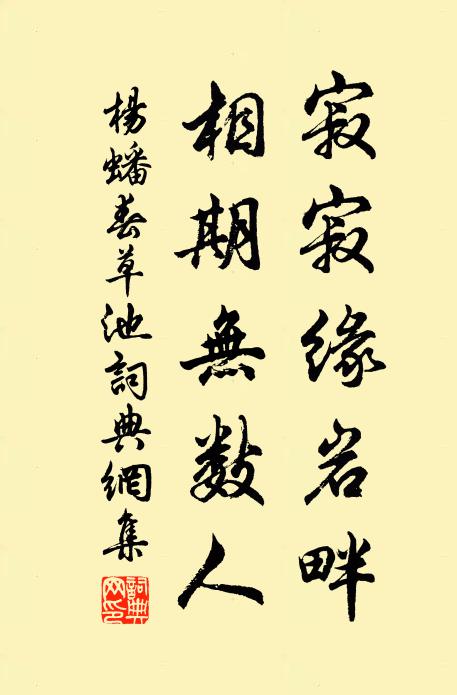 寂寂緣岩畔
相期無數人
楊蟠春草池詞典網集
詞典網印